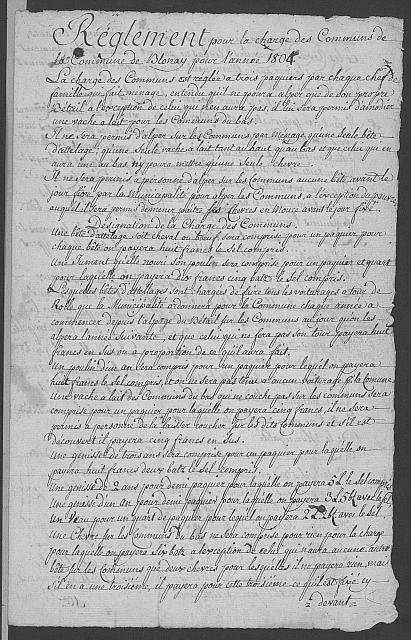 Réglement pour la charge des Communs de
la Commune de Blonay pour l'année 1804.
La charge des Communs est réglée a trois paquiers par chaque chef de
famille qui fait menage, entendu qu'il ne poura alper que de son propre
Bétail a l'exception de celui qui n'en aura pas, il lui sera permis d'amodier
une vache a lait pour les Communs du bas.
Il ne sera permis d'alper sur les Communs, par Menage, qu'une seule bête
d'attelage, qu'une seule vache a lait tant au haut qu'au bas et que celui qui en
aura une au bas n'y poura mettre qu'une seule chevre.
Il ne sera permis a personne d'alper sur les Communs aucune bête avant le
jour fixé par la Municipalité pour alper les Communs, a l'exception du pauvre
auquel il sera permis de mener paître ses chevres en avant le jour fixé.
Désignation de la Charge des Communs.
Une bête d'attelage soit cheval ou boeuf sera comprise pour un paquier pour
chaque bête on payera huit francs le sel compris.
Une Jument qu'elle nouri son poulin sera comprise pour un paquier et quart
pour laquelle on payera dix francs cinq batz le sel compris.
Lesquelles bêtes d'attellages sont chargées de faire tous les voiturages a tour de
Rolle que la Municipalité ordonnera pour la Commune chaque année a
commencer depuis l'alpage du Bétail sur les Communs au jour qu'on les
alpera l'année suivante, et que celui qui ne fera pas son tour payera huit
francs en sus ou a proportion de ce qu'il aura fait.
Un poulin d'un an sera compris pour un paquier pour lequel on payera
huit francs le sel compris, et on ne sera pas tenu a aucun voiturage p.r la Comune
Une vache a lait des Communs du bas qui ne couche pas sur les communs sera
comprise pour un paquier pour laquelle on payera cinq francs, il ne sera
permis a personne de la laisser coucher sur les dits Communs et s'il est
découvert il payera cinq francs en sus.
Une genisse de trois ans sera comprise pour un paquier pour laquelle on
payera huit francs deux batz le sel compris.
Une genisse de 2 ans pour demi paquier pour laquelle on payera le sel compris
Une genisse d'un an pour demi paquier pour laquelle on payera avec le sel
Un Veau pour un quart de paquier pour lequel on payera avec le sel.
Une Chevre sur les Communs du bas ne sera comprise pour rien pour la charge
pour laquelle on payera six batz a l'exception de celui qui n'aura aucune autre
bête sur les Communs que deux chevres pour lesquelles il ne payera rien mais
s'il en a une troisieme, il payera pour cette troisieme ce qu'il est fixé cy
devant.